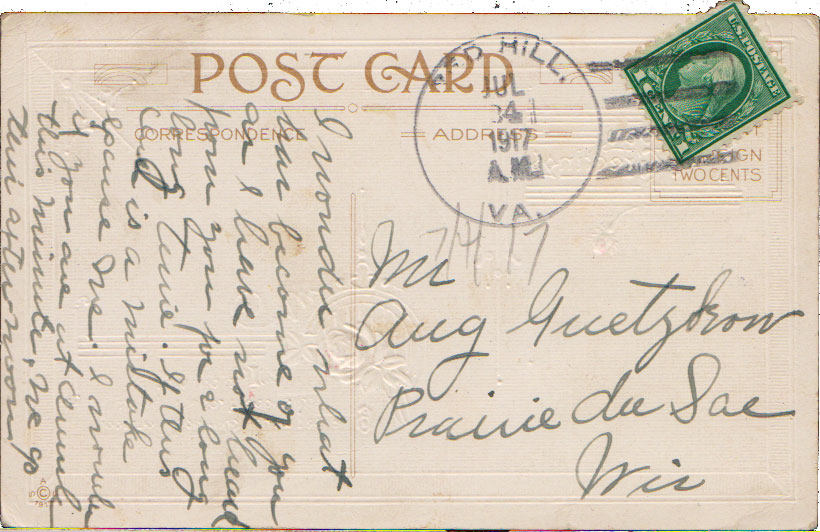 POST CARD
CORRESPONDENCE
ADDRESS
RED HILL,
JUL
4
1917
A.M.
VA.
U.S. POSTAGE
1 CENT 1
TWO CENTS
7/4/17
Mr
Aug Guetzkow
Prairie du Sac
Wis
I wonder what
has become of you
as I have not heard
from you for a long
long time. If this
Card is a mistake
excuse me. I wonder
if you are at
this minute, we go
this afternoon